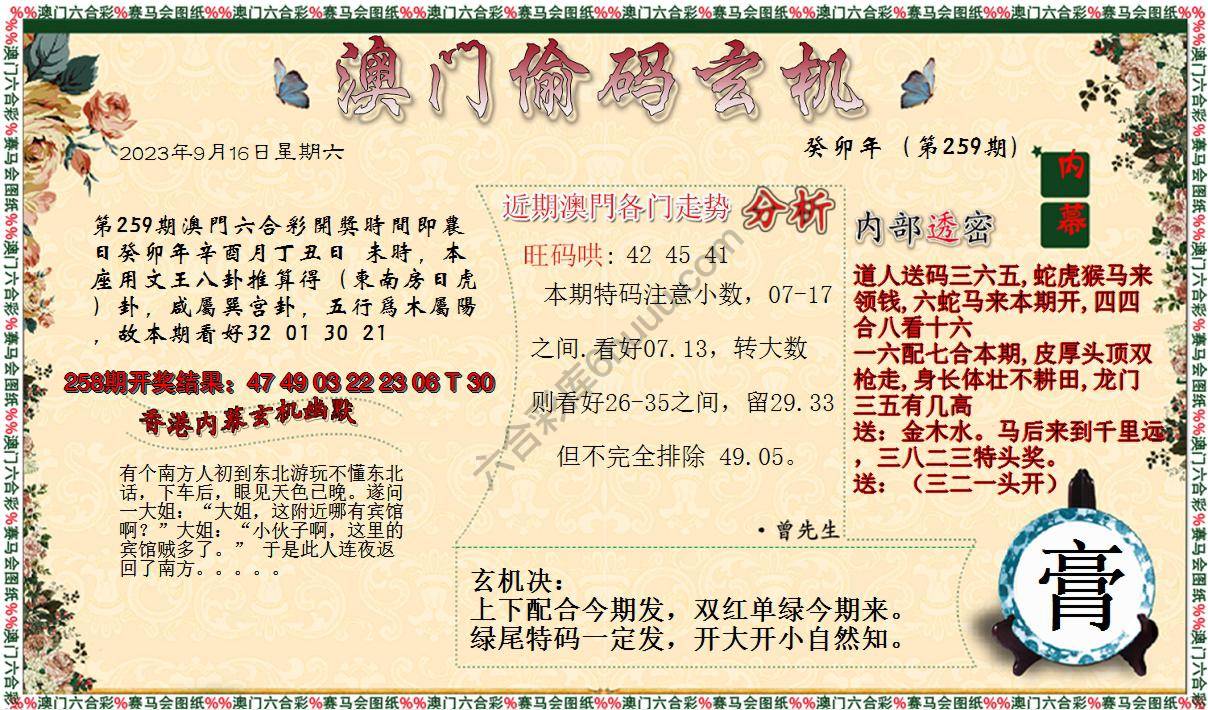 %%澳门六合彩%赛马会图纸%%澳门六合彩%赛马会图纸%%澳门六合彩%赛马会图纸%%澳门六合彩%赛马会图纸%%澳门六合彩%赛马会图纸%%澳门六合彩%赛马会图纸%%
澳门偷码玄机
2023年9月16日星期六
癸卯年（第259期）
内幕
第259期澳門六合彩開獎時間即農
日癸卯年辛酉月丁丑日 未時，本
座用文王八卦推算得（東南房日虎
）卦，咸屬巽宫卦，五行爲木屬陽
，故本期看好32 01 30 21
258期开奖结果：47 49 03 22 23 06 T 30
香港内幕玄机幽默
有个南方人初到东北游玩不懂东北
话，下车后，眼见天色已晚。遂问
一大姐：“大姐，这附近哪有宾馆
啊？”大姐：“小伙子啊，这里的
宾馆贼多了。” 于是此人连夜返
回了南方。。。。。
近期澳門各门走势 分析
旺码哄：42 45 41
本期特码注意小数，07-17
之间.看好07.13，转大数
则看好26-35之间，留29.33
但不完全排除 49.05。
·曾先生
内部透密
道人送码三六五,蛇虎猴马来
领钱,六蛇马来本期开,四四
合八看十六
一六配七合本期,皮厚头顶双
枪走,身长体壮不耕田,龙门
三五有几高
送：金木水。马后来到千里远
，三八二三特头奖。
送：（三二一头开）
玄机决：
上下配合今期发，双红单绿今期来。
绿尾特码一定发，开大开小自然知。
膏
%%澳门六合彩%赛马会图纸%%澳门六合彩%赛马会图纸%%澳门六合彩%赛马会图纸%%澳门六合彩%赛马会图纸%%澳门六合彩%赛马会图纸%%澳门六合彩%赛马会图纸%%